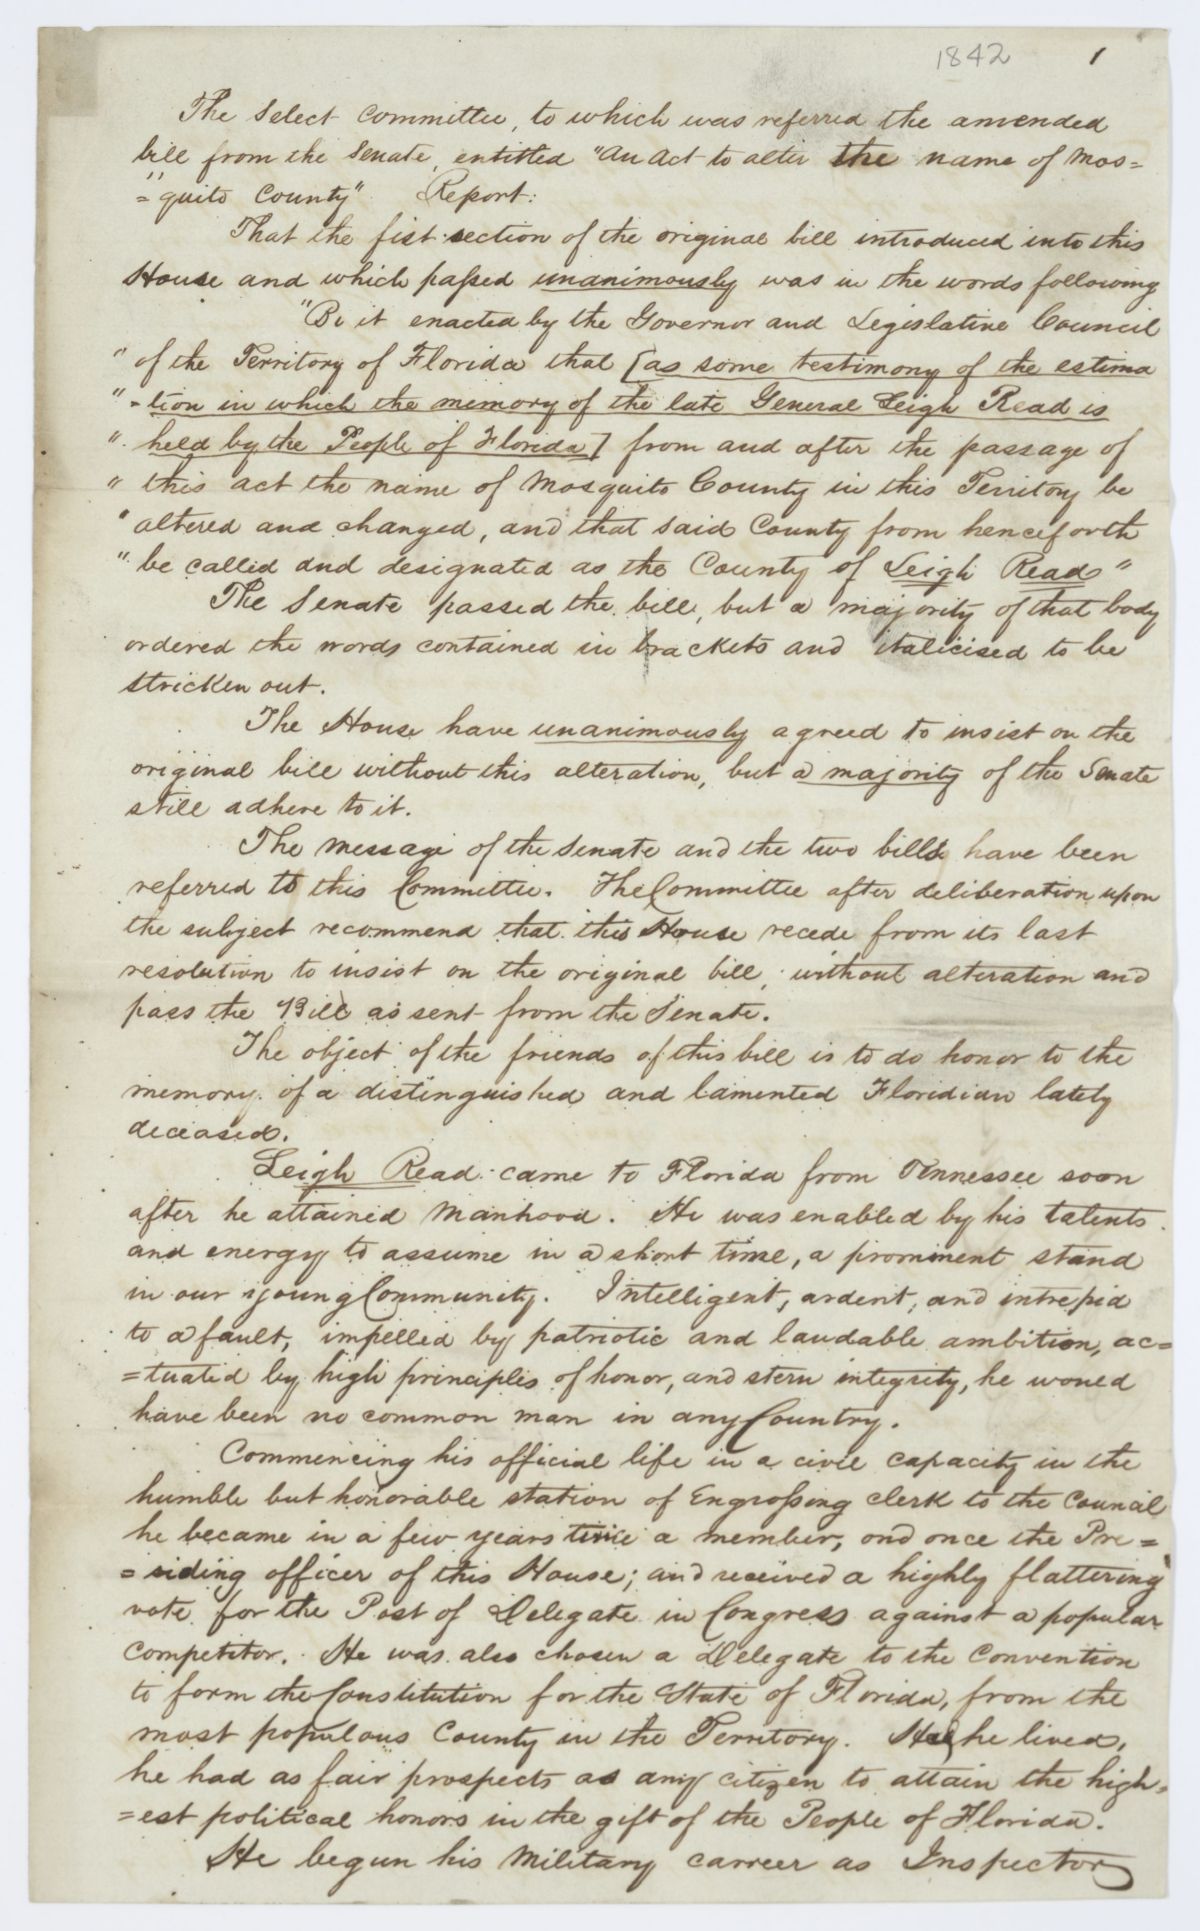 1842 1
The Select Committee, to which was referred the amended
bill from the Senate, entitled "An Act to alter the name of Mos=
="quito County" Report:
That the fist section of the original bill introduced into this
House and which passed unanimously was in the words following
"Be it enacted by the Governor and Legislative Council
" of the Territory of Florida that [as some testimony of the estima
" -tion in which the memory of the late General Leigh Read is
" held by the People of Florida] from and after the passage of
" this act the name of Mosquito County in this Territory be
" altered and changed, and that said County from henceforth
" be called and designated as the County of Leigh Read"
The Senate passed the bill, but a majority of that body
ordered the words contained in brackets and italicised to be
stricken out.
The House have unanimously agreed to insist on the
original bill without this alteration, but a majority of the Senate
still adhere to it.
The message of the Senate and the two bills have been
referred to this Committee. The Committee after deliberation upon
the subject recommend that this House recede from its last
resolution to insist on the original bill, without alteration and
pass the Bill as sent from the Senate.
The object of the friends of this bill is to do honor to the
memory of a distinguished and lamented Floridian lately
deceased.
Leigh Read came to Florida from Tennessee soon
after he attained manhood. He was enabled by his talents
and energy to assume in a short time, a prominent stand
in our young Community. Intelligent, ardent, and intrepid
to a fault, impelled by patriotic and laudable ambition, ac=
=tuated by high principles of honor, and stern integrity, he would
have been no common man in any Country.
Commencing his official life in a civil capacity in the
humble but honorable station of Engrossing Clerk to the Council
he became in a few years twice a member, and once the Pre=
=siding officer of this House; and received a highly flattering
vote for the Post of Delegate in Congress against a popular
competitor. He was also chosen a Delegate to the Convention
to form the Constitution for the State of Florida, from the
most populous County in the Territory. Had he lived,
he had as fair prospects as any citizen to attain the high=
=est political honors in the gift of the People of Florida.
He begun his Military carreer as Inspector